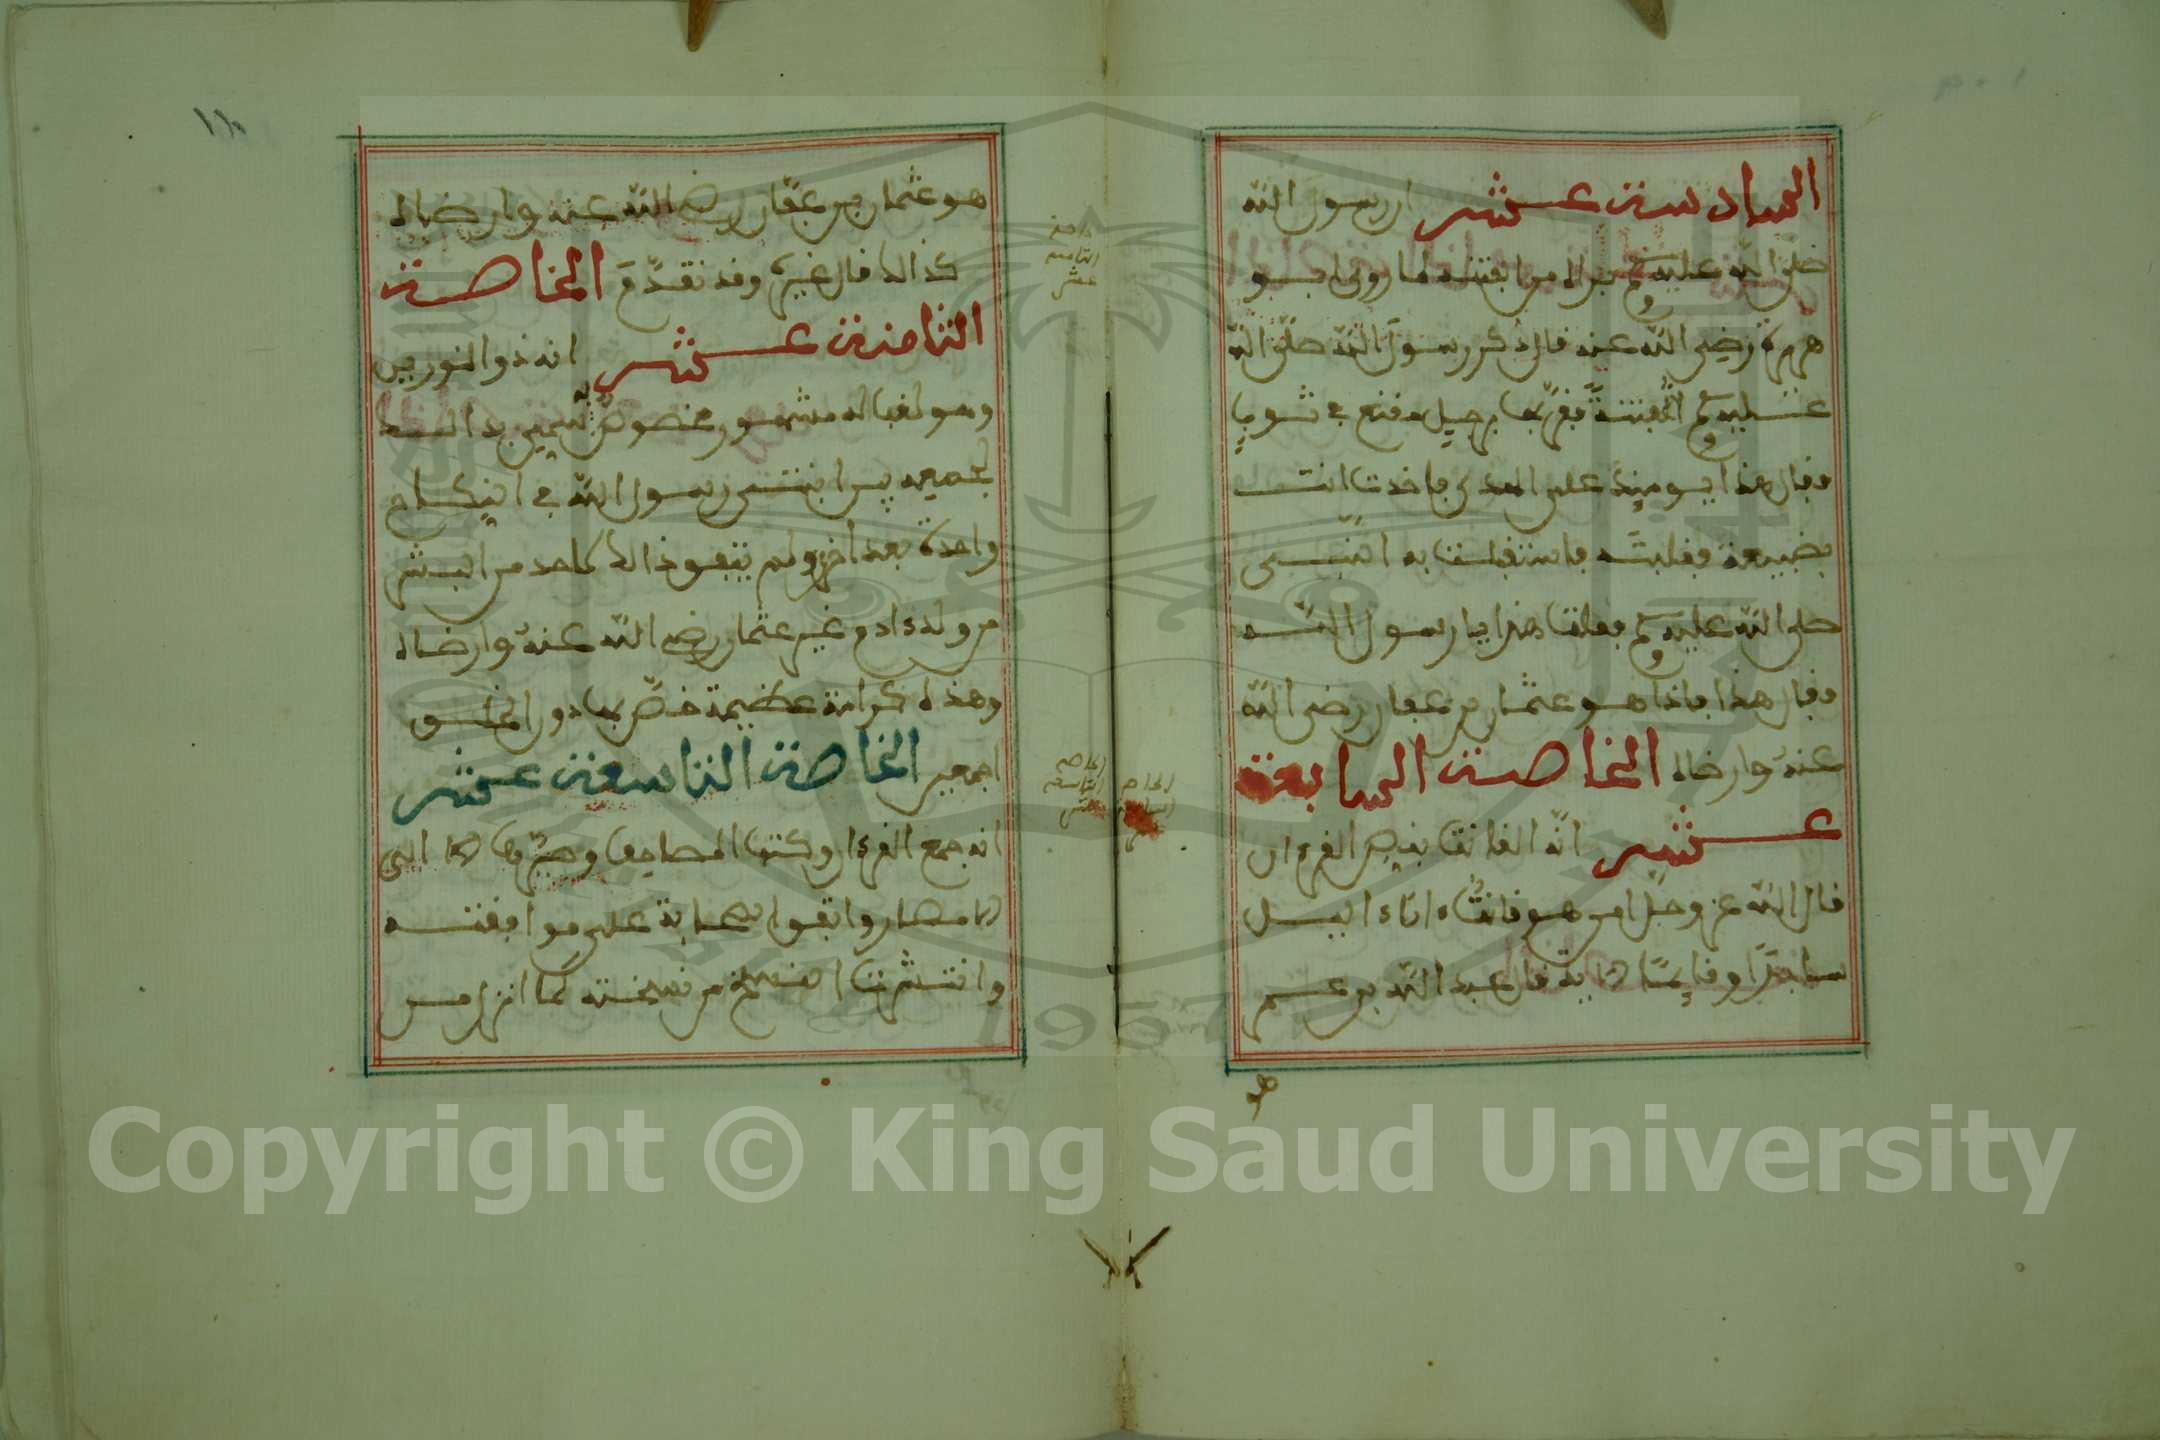 السادسة عشر ان رسول الله
صلى الله عليه وسلم براه من الفتنة لما روى ابو
هريرة رضي الله عنه قال ذكر رسول الله صلى الله
عليه وسلم الفتنة فقربها رجل مقنع في ثوب
فقال هذا يوميذ على الهدى فاخذت انت
بضبيعة فقلبته فاستقبلت به النبي
صلى الله عليه وسلم فقلت هذا يا رسول الله
فقال هذا فاذا هو عثمان بن عفان رضي الله
عنه وارضاه الخاصة السابعة
عشر انه القانت بنص القرءان
قال الله عز وجل امن هو قانت ءاناء اليل
ساجدا وقايما الاية قال عبد الله بن عمر
هو
هو عثمان بن عفان رضي الله عنه وارضاه
كذالك قال غيره وقد تقدم الخاصة
الثامنة عشر انه ذو النورين
وهو لقب له مشهور مخصوص به سمي بذالك
لجمعه بين ابنتي رسول الله في النكاح
واحدة بعد اخرى ولم يتفق ذالك لاحد من البشر
من ولد ءادم غير عثمان رضي الله عنه وارضاه
وهذه كرامة عظيمة خص بها دون الخلق
اجمعين الخاصة التاسعة عشر
انه جمع القرءان وكتب المصاحف وصيرها الى
الامصار واتفق الصحابة على موافقته
وانتشرت النسخ من نسخته كما انزل من
الثامنة
عشر
الخاصة
التاسعة
عشر
الخاصة
السابعة
عشر
Copyright © King Saud University
1957